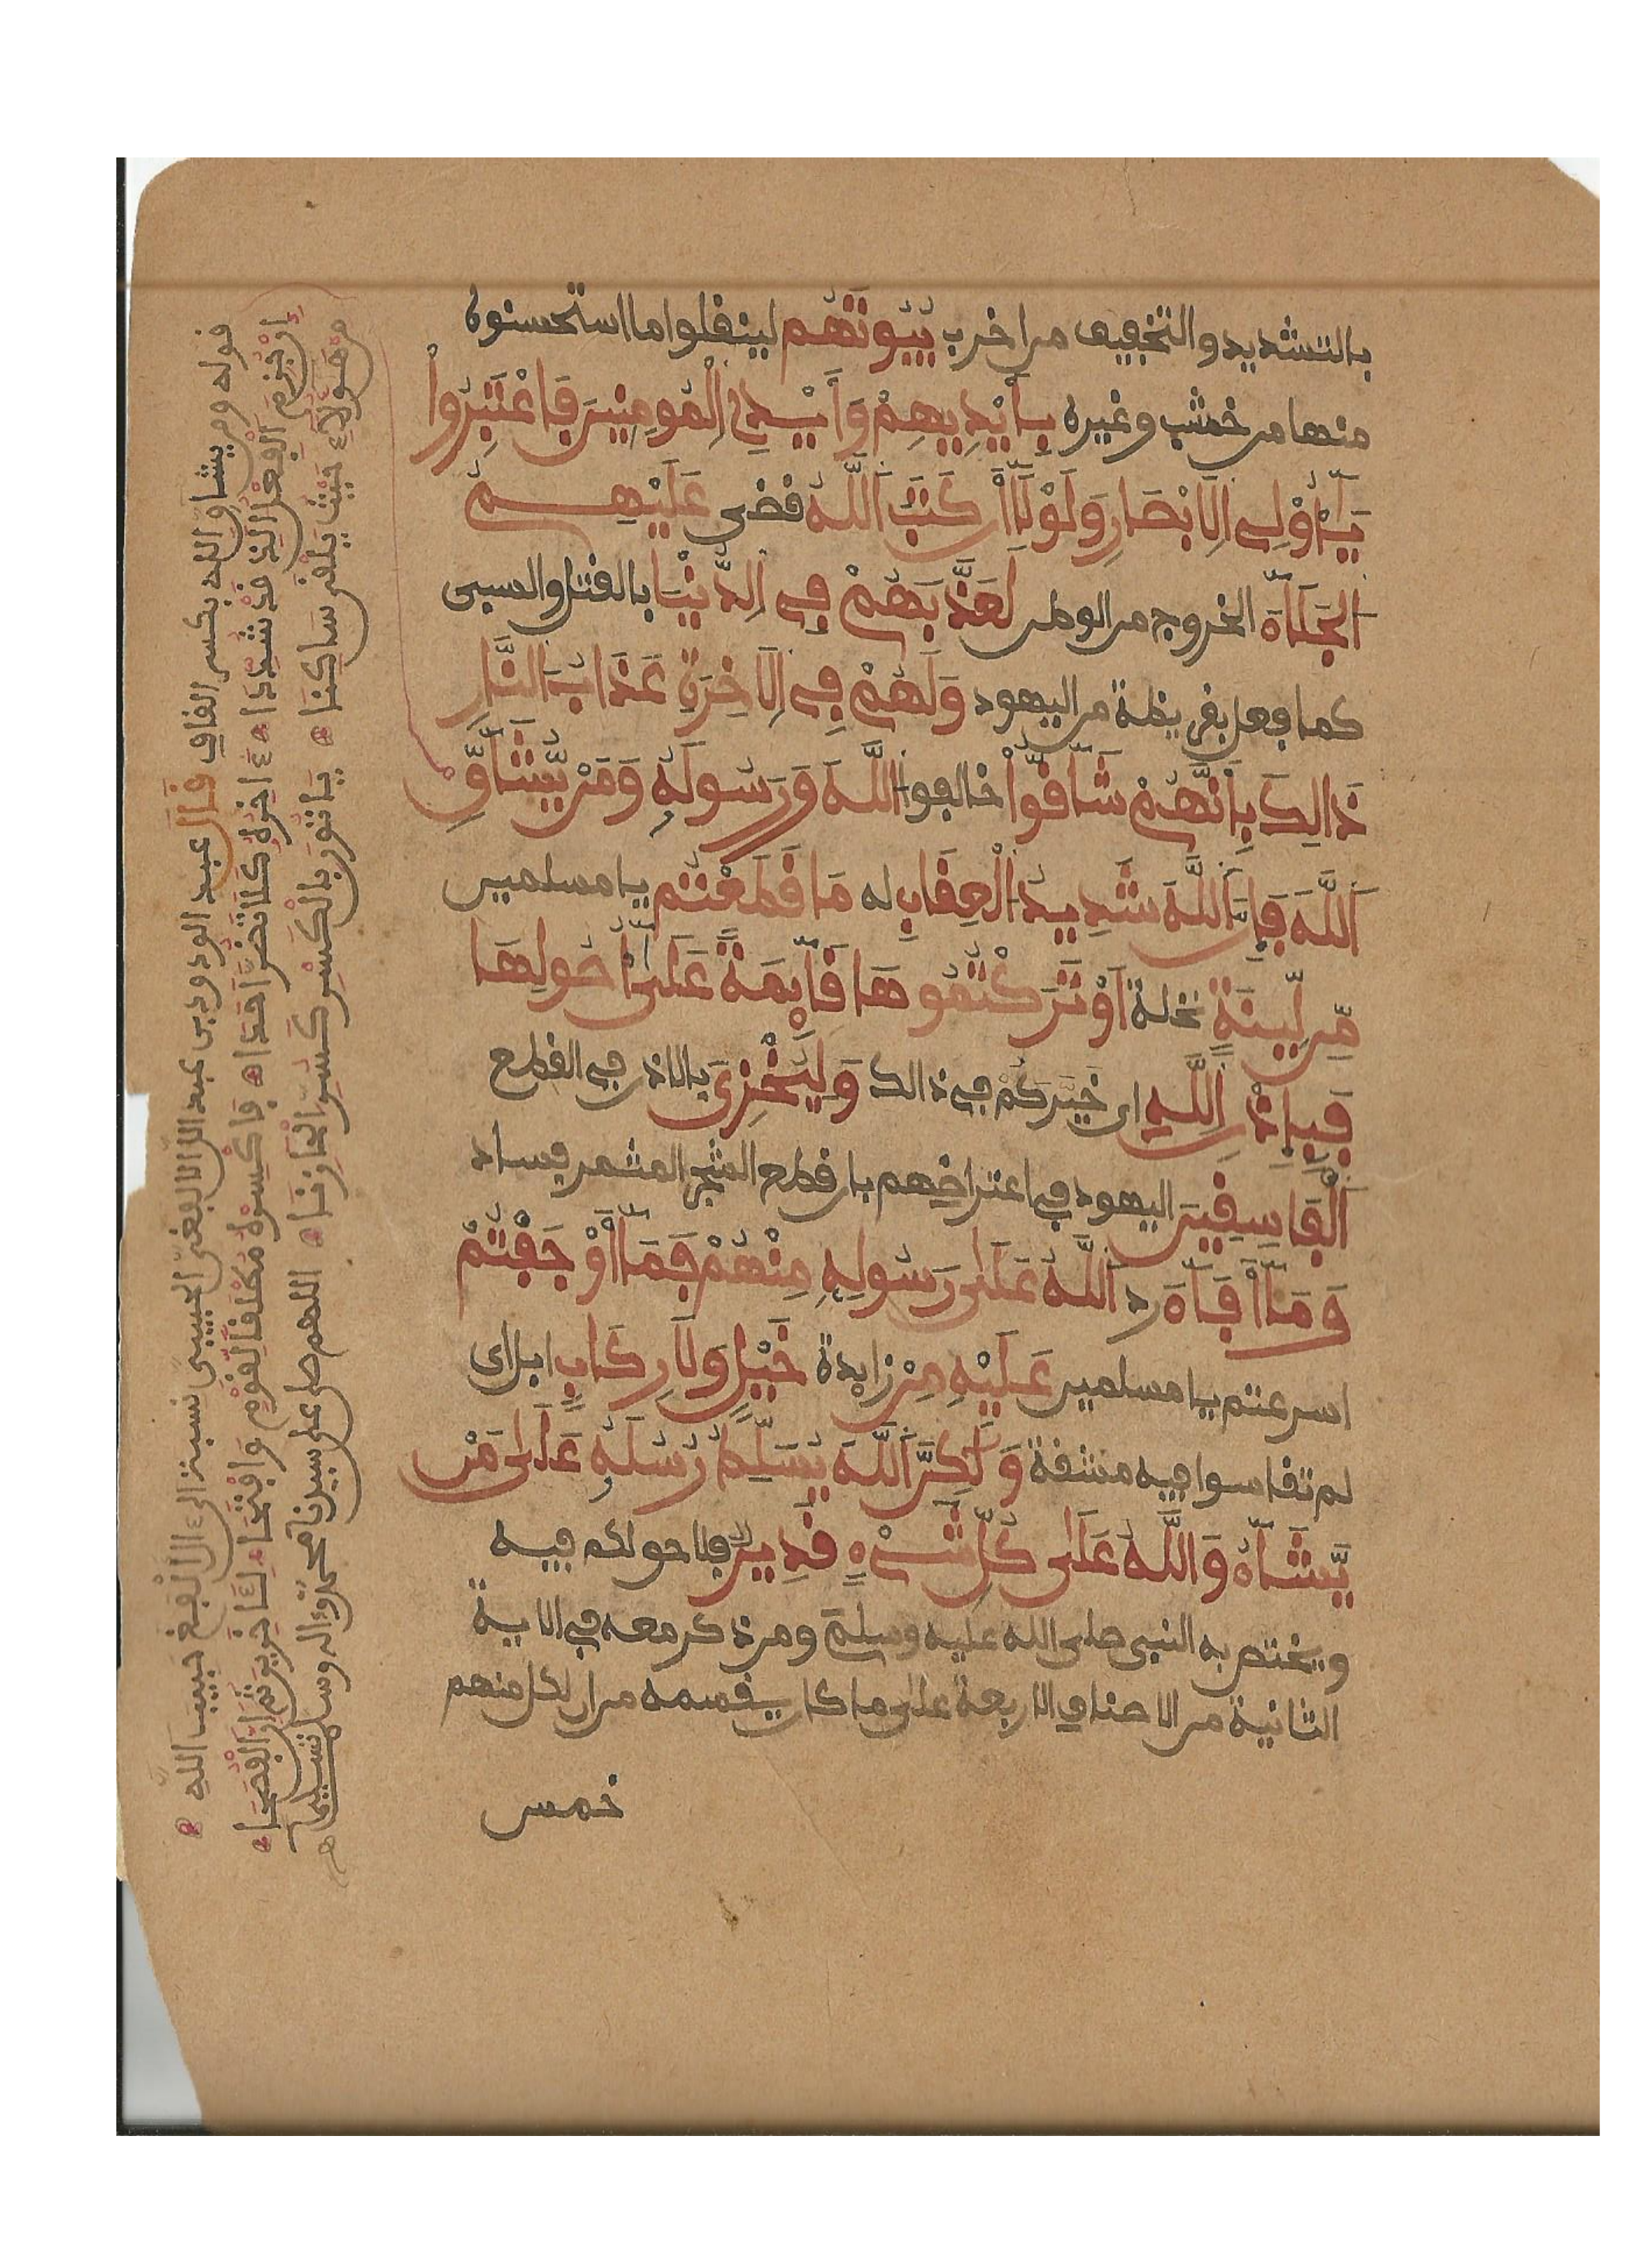 بالتشديد والتخفيف من اخرب بُيُوتَهُم لينقلوا ما استحسنوه
منها من خشب وغيره بِأَيْدِيهِمْ وَأَيْدِي اِلْمُومِنِينَ فَاعْتَبِرُواْ
يَٰٓأُوْلِي اِلَابْصَٰرِ وَلَوْلَآ أَن كَتَبَ اَللَّهُ قضى عَلَيْهِمُ
اَلْجَلَآءَ الخروج من الوطن لَعَذَّبَهُمْ فِي اِلدُّنْيَا بالقتل والسبى
كما فعل بقريظة من اليهود وَلَهُمْ فِي اِلَاخِرَةِ عَذَابُ اَلنَّارِ
ذَٰلِكَ بِأَنَّهُمْ شَآقُّواْ خالفوا اَللَّهَ وَرَسُولَهُ وَمَنْ يُّشَآقِّ
اِللَّهَ فَإِنَّ اَللَّهَ شَدِيدُ اُلْعِقَابِ له مَا قَطَعْتُم يا مسلمين
مِّن لِّينَةٍ نخلة اَوْ تَرَكْتُمُوهَا قَآئِمَةً عَلَىٰٓ أُصُولِهَا
فَبِإِذْنِ اِللَّهِ اى خَيَّركُم في ذالك وَلِيُخْزِيَ بالاذن في القطع
اَلْفَٰسِقِينَ اليهود في اعتراضهم بان قطع الشجر المثمر فساد
وَمَآ أَفَآءَ رد اَللَّهُ عَلَىٰ رَسُولِهِ مِنْهُمْ فَمَآ أَوْجَفْتُمْ
اسرعتم يا مسلمين عَلَيْهِ مِنْ زايدة خَيْلٍ وَلَا رِكَابٍ ابل اى
لم تقاسوا فيه مشقة وَلَٰكِنَّ اَللَّهَ يُسَلِّطُ رُسُلَهُ عَلَىٰ مَنْ
يَّشَآءُ وَاللَّهُ عَلَىٰ كُلِّ شَيْءٍ قَدِيرٌ فلا حق لكم فيه
ويختص به النبى صلى الله عليه وسلم ومن ذكر معه في الاية
الثانية من الاصناف الاربعة على ما كان يقسمه من ان لكل منهم
خمس
قوله ومن يشاق الله بكسر القاف قَالَ عبد الودود بن عبد الله الالفغى الحبيبى نسبة الى الالفغ حبيب الله
إن جُزم الفعل الذ قد شددا ءاخره كلا تضر احدا فاكسره مطلقا لقوم وافتحا لئاخرين ثم إن الفصحا
من هؤلاء حيث يلقى ساكنا ياتون بالكسر اللهم صل على سيدنا محمد وءاله وسلم تسليما